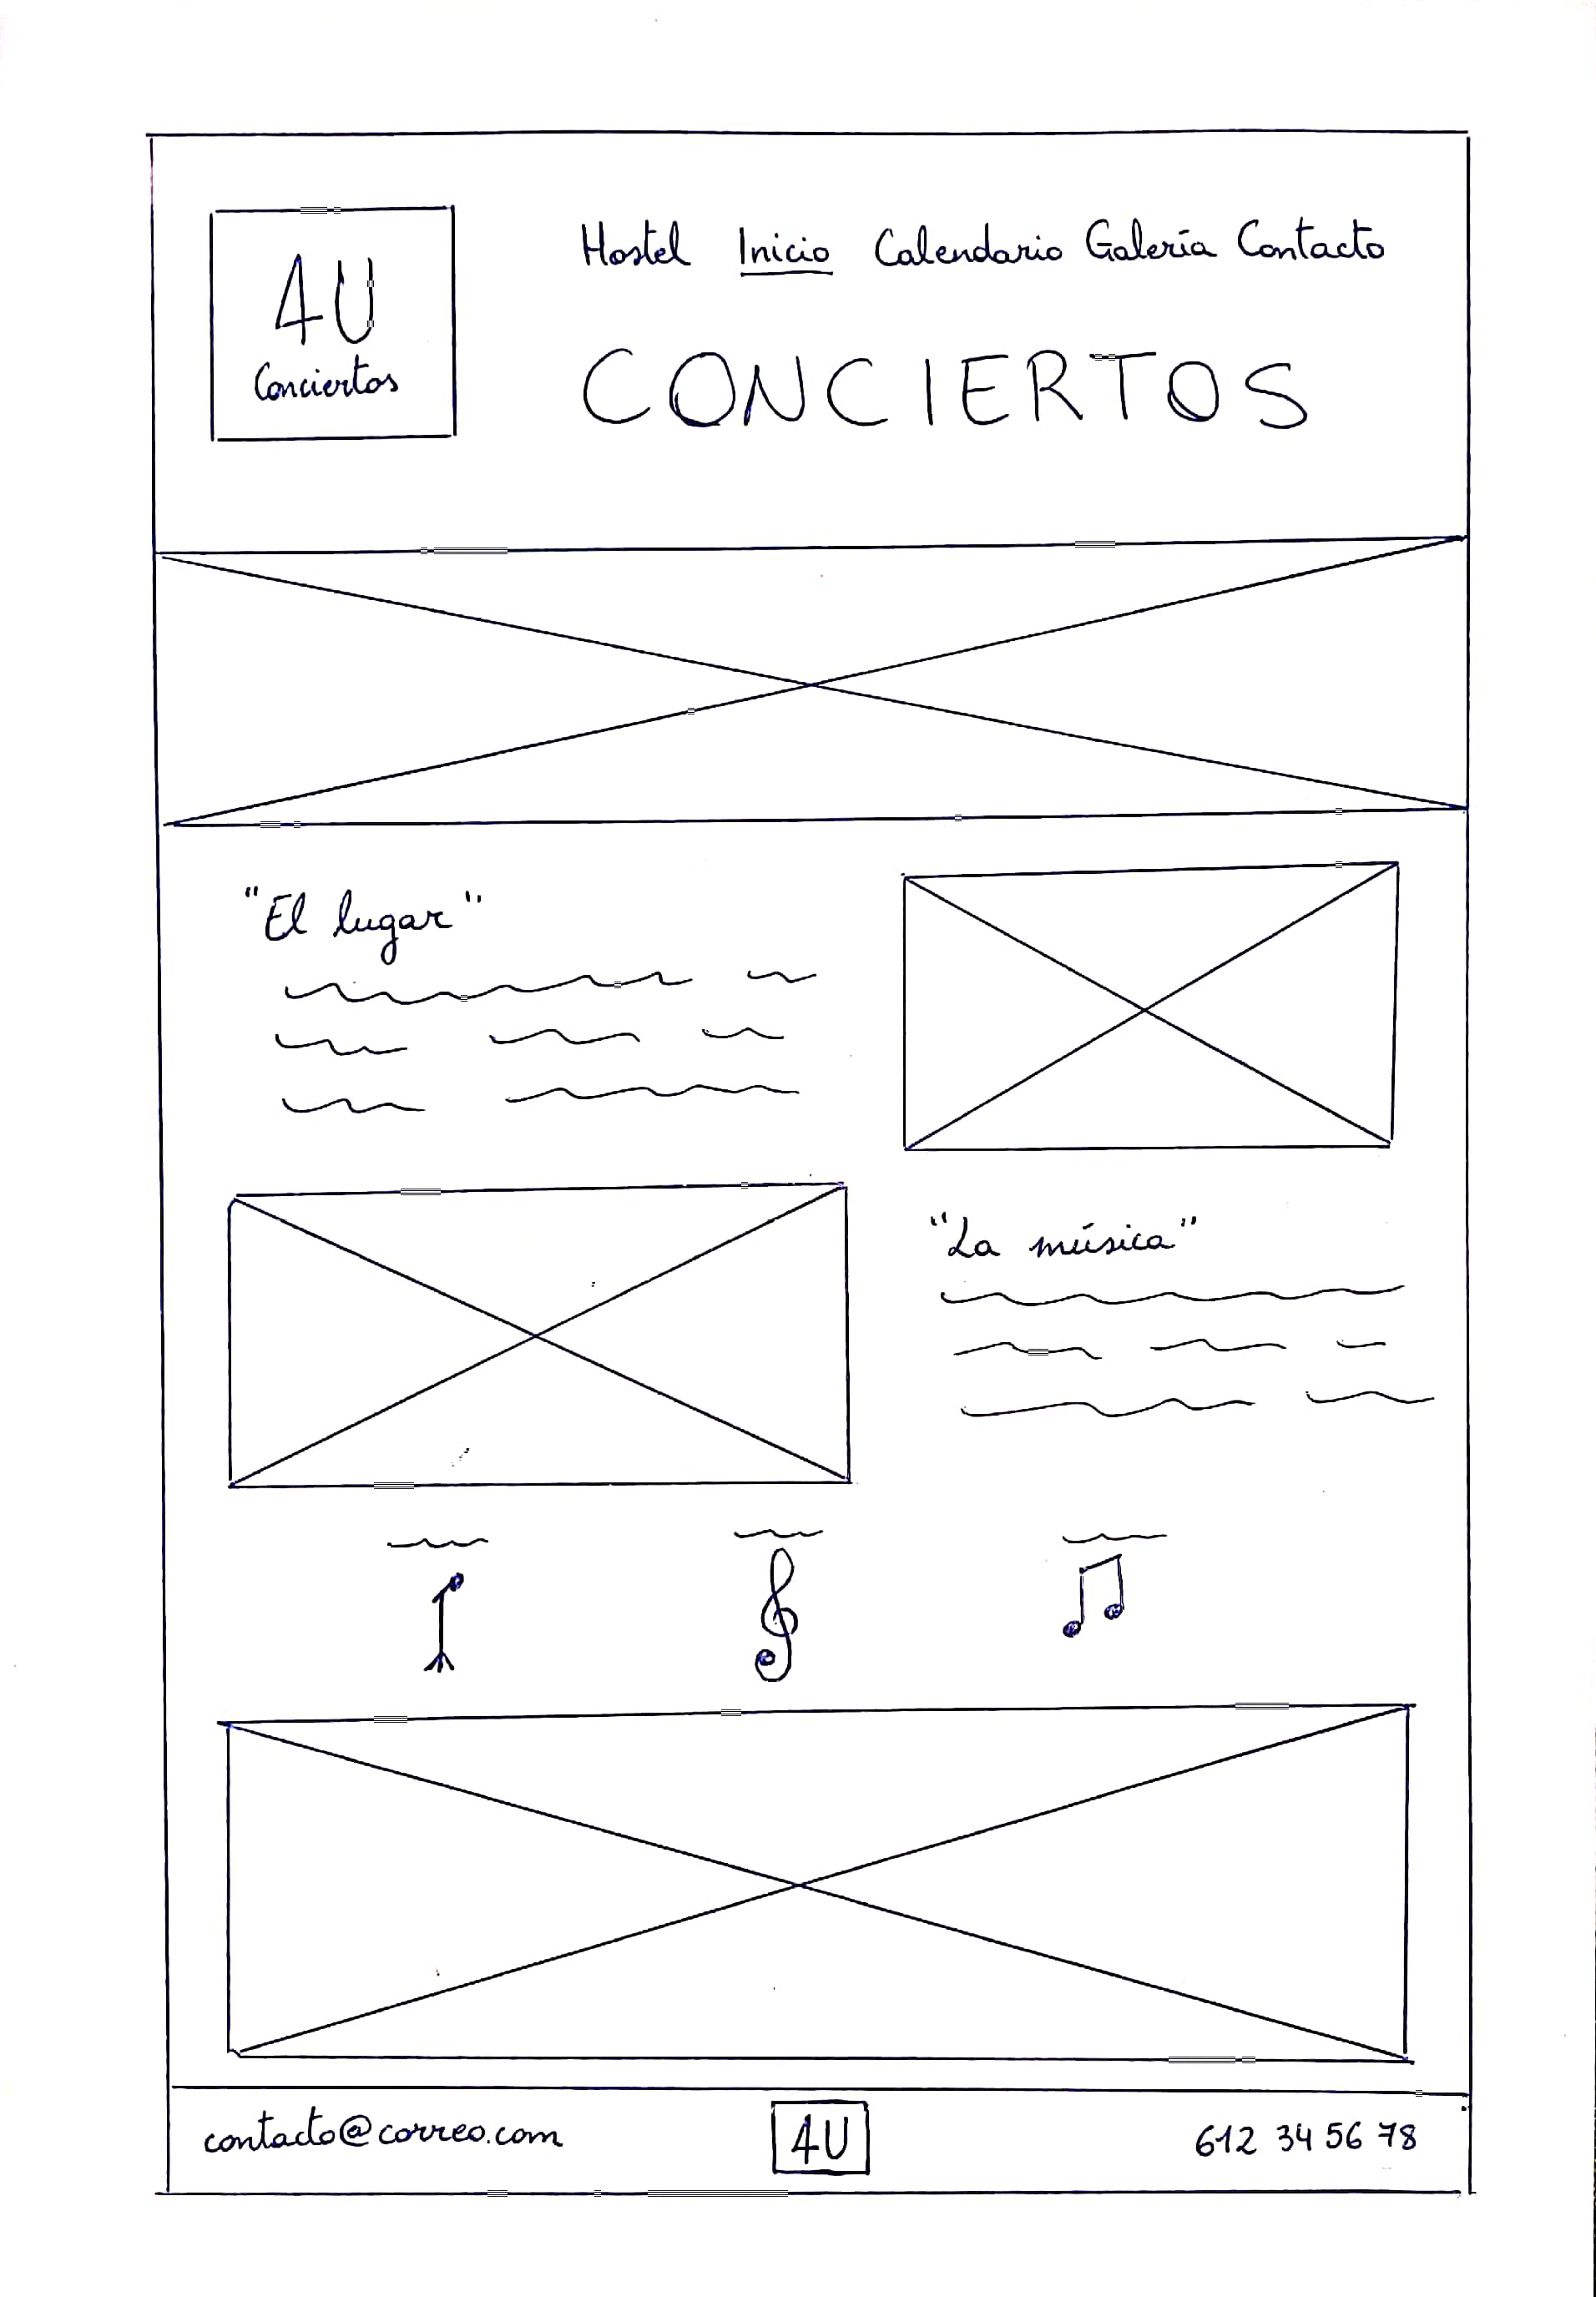 4U
Conciertos
Hostel Inicio Calendario Galería Contacto
CONCIERTOS
"El lugar"
"La música"
contacto@correo.com
4U
612 34 56 78